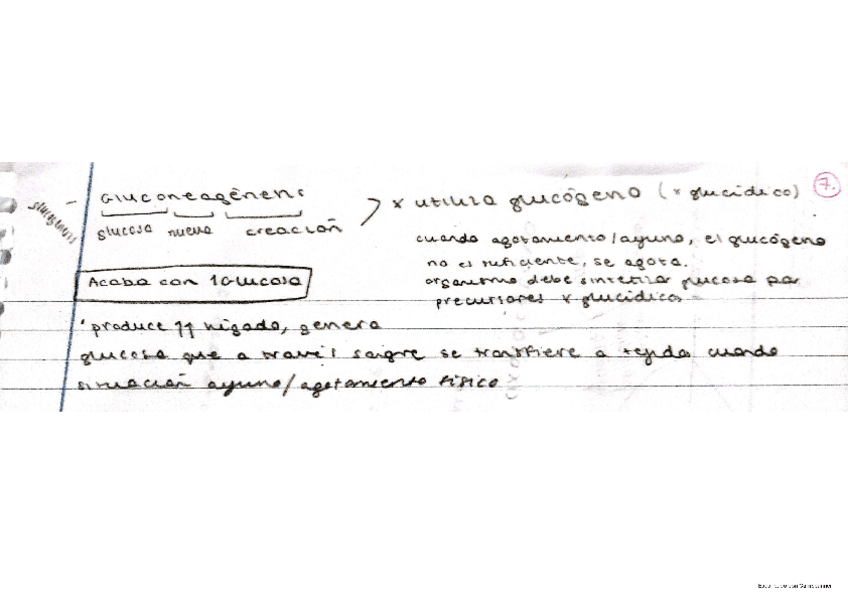 7.
- Gluconeogénesis > x utiliza glucógeno (x glucídico)
glucosa nueva creación
cuando agotamiento/ayuno, el glucógeno
no es suficiente, se agota.
Acaba con 1 Glucosa
organismo debe sintetiza glucosa por
precursores x glucídicos
produce 11 hígado, genera
glucosa que a través sangre se transfiere a tejido cuando
situación ayuno/agotamiento físico